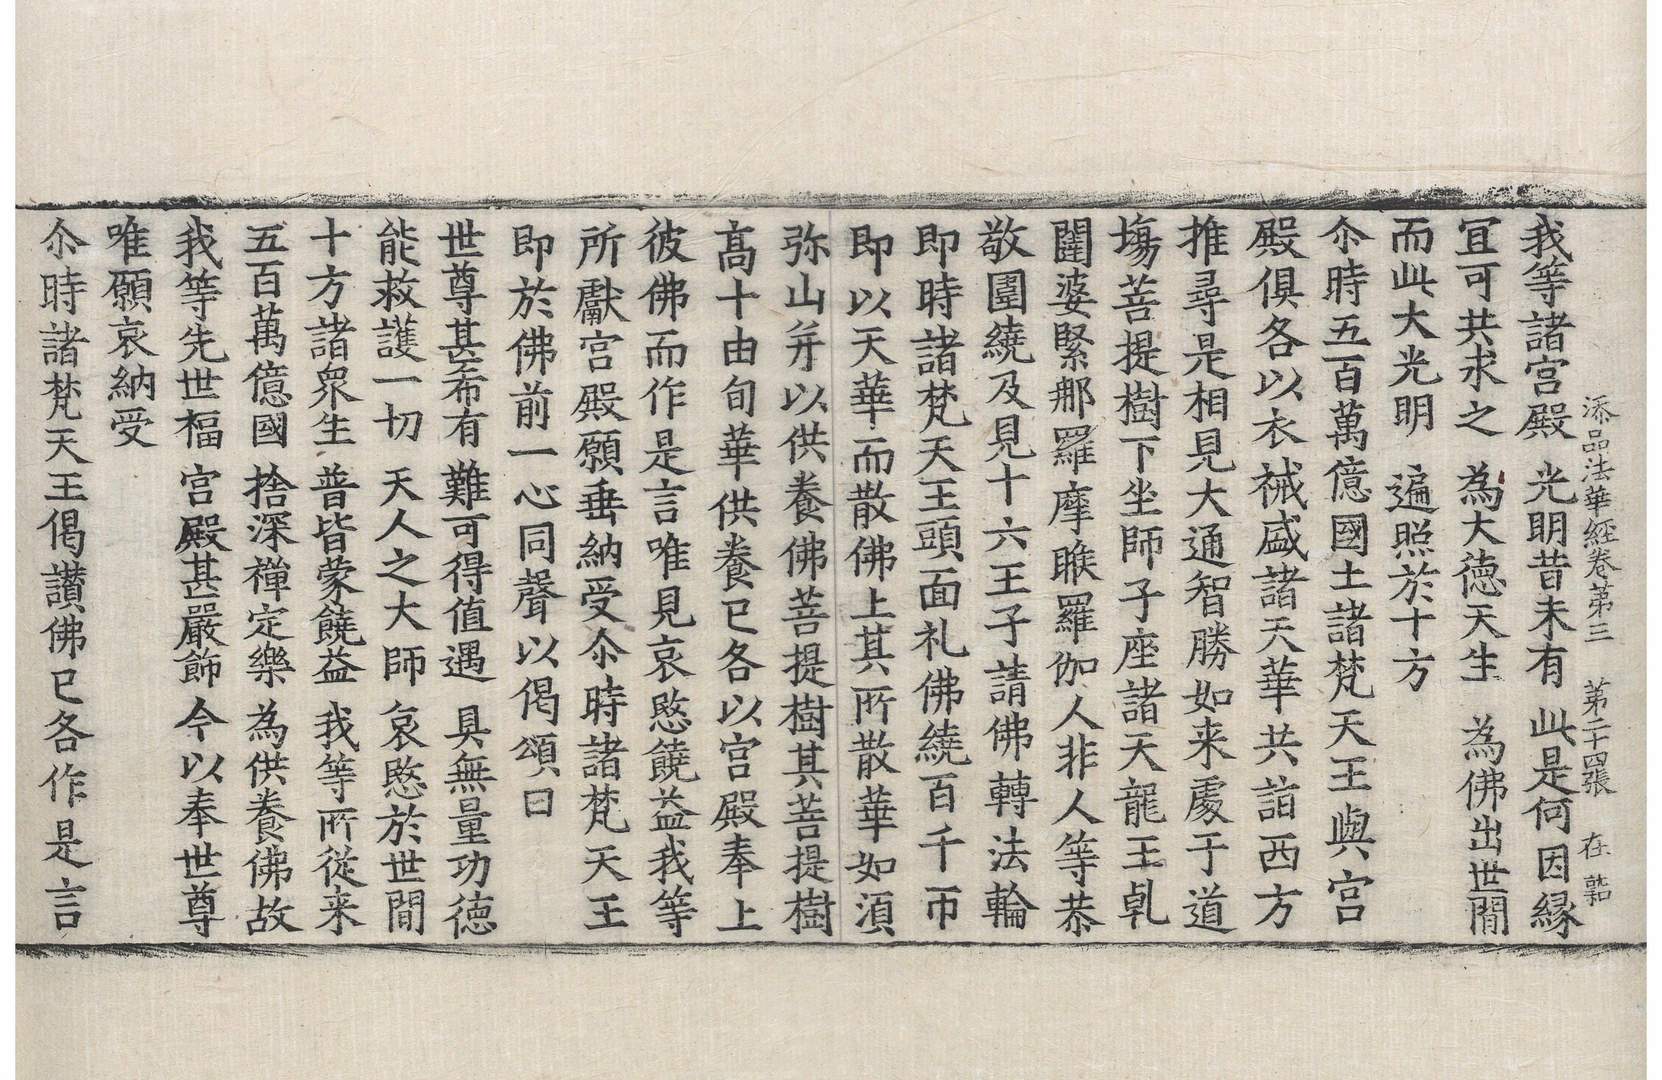 添品法華經卷第三 第二十四張 在
我等諸宮殿 光明昔未有 此是何因緣
冝可共求之 為大德天生 為佛出世閒
而此大光明 遍照於十方
尒時五百萬億國土諸梵天王與宮
殿俱各以衣祴盛諸天華共詣西方
推尋是相見大通智勝如来處于道
場菩提樹下坐師子座諸天龍王乹
闥婆緊那羅摩睺羅伽人非人等恭
敬圍繞及見十六王子請佛轉法輪
即時諸梵天王頭面礼佛繞百千帀
即以天華而散佛上其所散華如湏
弥山并以供養佛菩提樹其菩提樹
髙十由旬華供養已各以宮殿奉上
彼佛而作是言唯見哀愍饒益我等
所獻宮殿願垂納受尒時諸梵天王
即於佛前一心同聲以偈頌曰
世尊甚希有 難可得值遇 具無量功德
能救護一切 天人之大師 哀愍於世閒
十方諸眾生 普皆蒙饒益 我等所從来
五百萬億國 捨深禪定樂 為供養佛故
我等先世福 宮殿甚嚴飾 今以奉世尊
唯願哀納受
尒時諸梵天王偈讚佛已各作是言